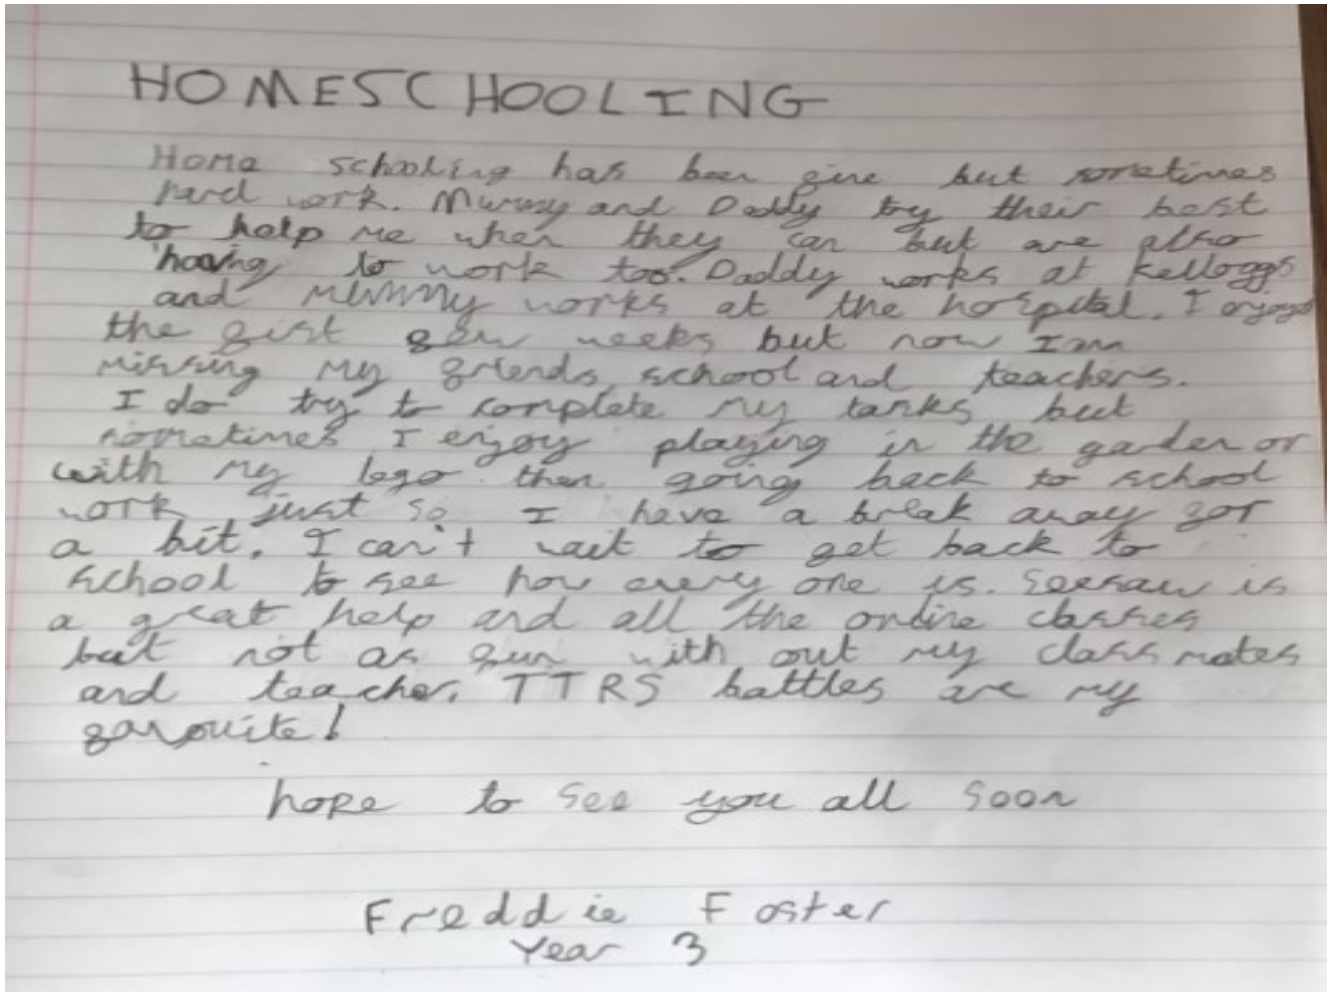 HOMESCHOOLING
Home schooling has been fine but sometimes
hard work. Mummy and Daddy try their best
to help me when they can but are also
having to work too. Daddy works at Kelloggs
and mummy works at the hospital. I enjoyed
the first few weeks but now I am
missing my friends, school and teachers.
I do try to complete my tasks but
sometimes I enjoy playing in the garden or
with my lego then going back to school
work just so I have a break away for
a bit. I can't wait to get back to
school to see how every one is. Seesaw is
a great help and all the online classes
but not as fun with out my class mates
and teacher. TTRS battles are my
favouite!
hope to see you all soon
Freddie Foster
Year 3